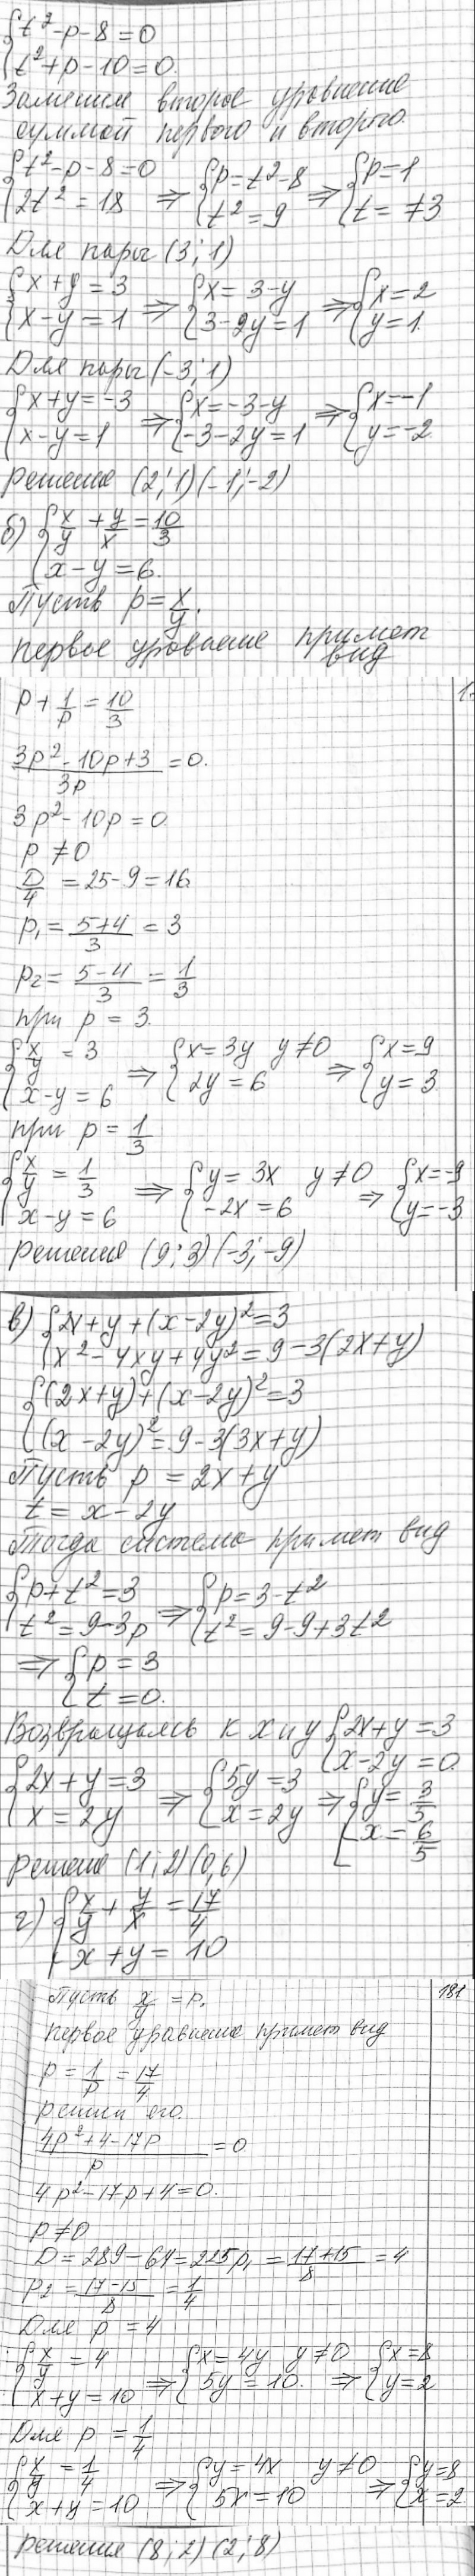 {t² - p - 8 = 0
{t² + p - 10 = 0.
Заменим второе уравнение
суммой первого и второго
{t² - p - 8 = 0 ⇒ {p = t² - 8 ⇒ {p = 1
{2t² = 18 {t² = 9 {t = ∓3
Для пары (3; 1)
{x + y = 3 ⇒ {x = 3 - y ⇒ {x = 2
{x - y = 1 {3 - 2y = 1 {y = 1.
Для пары (-3; 1)
{x + y = -3 ⇒ {x = -3 - y ⇒ {x = -1
{x - y = 1 {-3 - 2y = 1 {y = -2
решение (2; 1) (-1; -2)
б) {x/y + y/x = 10/3
{x - y = 6.
Пусть p = x/y.
первое уровнение примет
вид
p + 1/p = 10/3
(3p² - 10p + 3)/3p = 0.
3p² - 10p = 0
p ≠ 0
D/4 = 25 - 9 = 16
p₁ = (5+4)/3 = 3
p₂ = (5-4)/3 = 1/3
при p = 3.
{x/y = 3 ⇒ {x = 3y y ≠ 0 ⇒ {x = 9
{x - y = 6 {2y = 6 {y = 3
при p = 1/3
{x/y = 1/3 ⇒ {y = 3x y ≠ 0 ⇒ {x = -9
{x - y = 6 {-2x = 6 {y = -3
решения (9; 3) (-3; -9)
в) {2x + y + (x - 2y)² = 3
{x² - 4xy + 4y² = 9 - 3(2x + y)
{(2x + y) + (x - 2y)² = 3
{(x - 2y)² = 9 - 3(3x + y)
Пусть p = 2x + y
t = x - 2y
тогда система примет вид
{p + t² = 3 ⇒ {p = 3 - t²
{t² = 9 - 3p {t² = 9 - 9 + 3t²
⇒ {p = 3
{t = 0.
Возвращаясь к x и y {2x + y = 3
{x - 2y = 0
{2x + y = 3 ⇒ {5y = 3 ⇒ {y = 3/5
{x = 2y {x = 2y {x = 6/5
решение (1; 2) (0,6)
г) {x/y + y/x = 17/4
{x + y = 10
Пусть x/y = p. 181
первое уравнение примет вид
p = 1/p = 17/4
решим его.
(4p² + 4 - 17p)/p = 0.
4p² - 17p + 4 = 0.
p ≠ 0
D = 289 - 64 = 225 p₁ = (17+15)/8 = 4
p₂ = (17-15)/8 = 1/4
Для p = 4
{x/y = 4 ⇒ {x = 4y y ≠ 0 ⇒ {x = 8
{x + y = 10 {5y = 10. {y = 2
Для p = 1/4
{x/y = 1/4 ⇒ {y = 4x y ≠ 0 ⇒ {y = 8
{x + y = 10 {5x = 10 {x = 2
решения (8; 2) (2; 8)